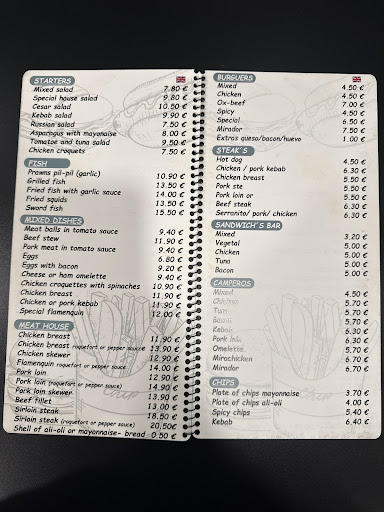 STARTERS
Mixed salad 7.80 €
Special house salad 9.80 €
Cesar salad 10.50 €
Kebab salad 9.90 €
Russian salad 7.50 €
Asparagus with mayonaise 8.00 €
Tomatoe and tuna salad 9.50 €
Chicken croquets 7.50 €
FISH
Prawns pil-pil (garlic) 10.90 €
Grilled fish 13.50 €
Fried fish with garlic sauce 14.00 €
Fried squids 13.50 €
Sword fish 15.50 €
MIXED DISHES
Meat balls in tomato sauce 9.40 €
Beef stew 11.90 €
Pork meat in tomato sauce 9.40 €
Eggs 6.80 €
Eggs with bacon 9.20 €
Cheese or ham omelette 9.40 €
Chicken croquettes with spinaches 10.90 €
Chicken breast 11.90 €
Chicken or pork kebab 11.90 €
Special flamenquin 12.00 €
MEAT HOUSE
Chicken breast 11.90 €
Chicken breast (roquefort or pepper sauce) 13.90 €
Chicken skewer 12.90 €
Flamenquin (roquefort or pepper sauce) 14.00 €
Pork loin 12.90 €
Pork loin (roquefort or pepper sauce) 14.90 €
Pork loin skewer 13.90 €
Beef fillet 13.00 €
Sirloin steak 18.50 €
Sirloin steak (roquefort or pepper sauce) 20,50€
Shell of ali-oli or mayonnaise- bread 0.50 €
BURGUERS
Mixed 4.50 €
Chicken 4.50 €
Ox-beef 7.00 €
Spicy 4.50 €
Special 6.50 €
Mirador 7.50 €
Extras queso/bacon/huevo 1.00 €
STEAK´S
Hot dog 4.50 €
Chicken / pork kebab 6.30 €
Chicken breast 5.50 €
Pork ste 5.50 €
Pork loin or 5.50 €
Beef steak 6.30 €
Serranito/ pork/ chicken 6.30 €
SANDWICH´S BAR
Mixed 3.20 €
Vegetal 5.00 €
Chicken 5.00 €
Tuna 5.00 €
Bacon 5.00 €
CAMPEROS
Mixed 4.50 €
Chicken 5.70 €
Tuna 5.70 €
Bacon 5.70 €
Kebab 6.30 €
Pork loin 6.30 €
Omelette 5.70 €
Mirachicken 6.70 €
Mirador 6.70 €
CHIPS
Plate of chips mayonnaise 3.70 €
Plate of chips ali-oli 4.00 €
Spicy chips 5.40 €
Kebab 6,40 €